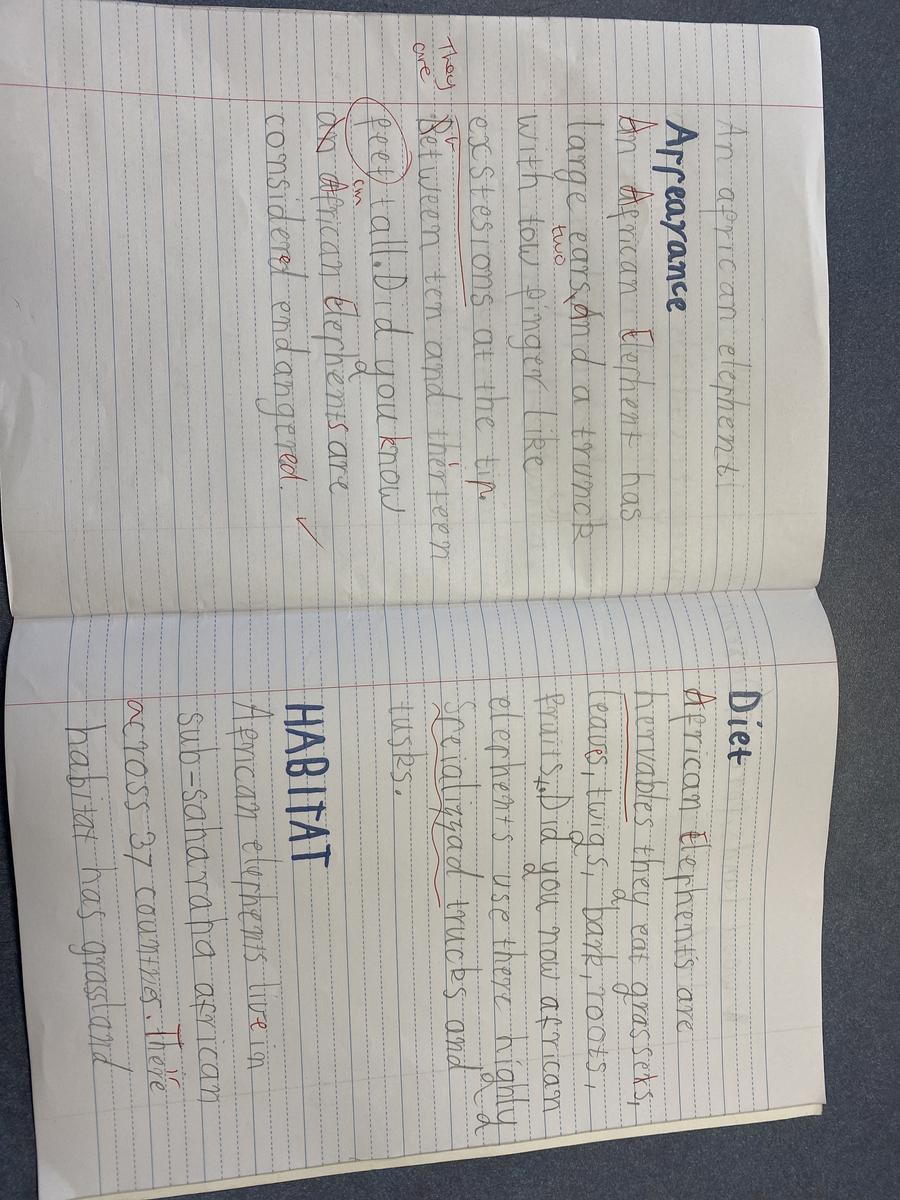 An african elephent!
Appearance
An African Elephent has
large ears, and a trunck
two
with tow finger like
exstesions at the tip.
They are
Between ten and therteen
feet tall. Did you know
cm
an African Elephents are
considered endangered.
Diet
African Elephents are
hervables they eat grasses,
leaves, twigs, bark, roots,
fruits, Did you now african
elephents use there highly
trucks and
tusks.
HABITAT
African elephents live in
sub-saharaha african
across 37 countries. Their
habitat has grassland